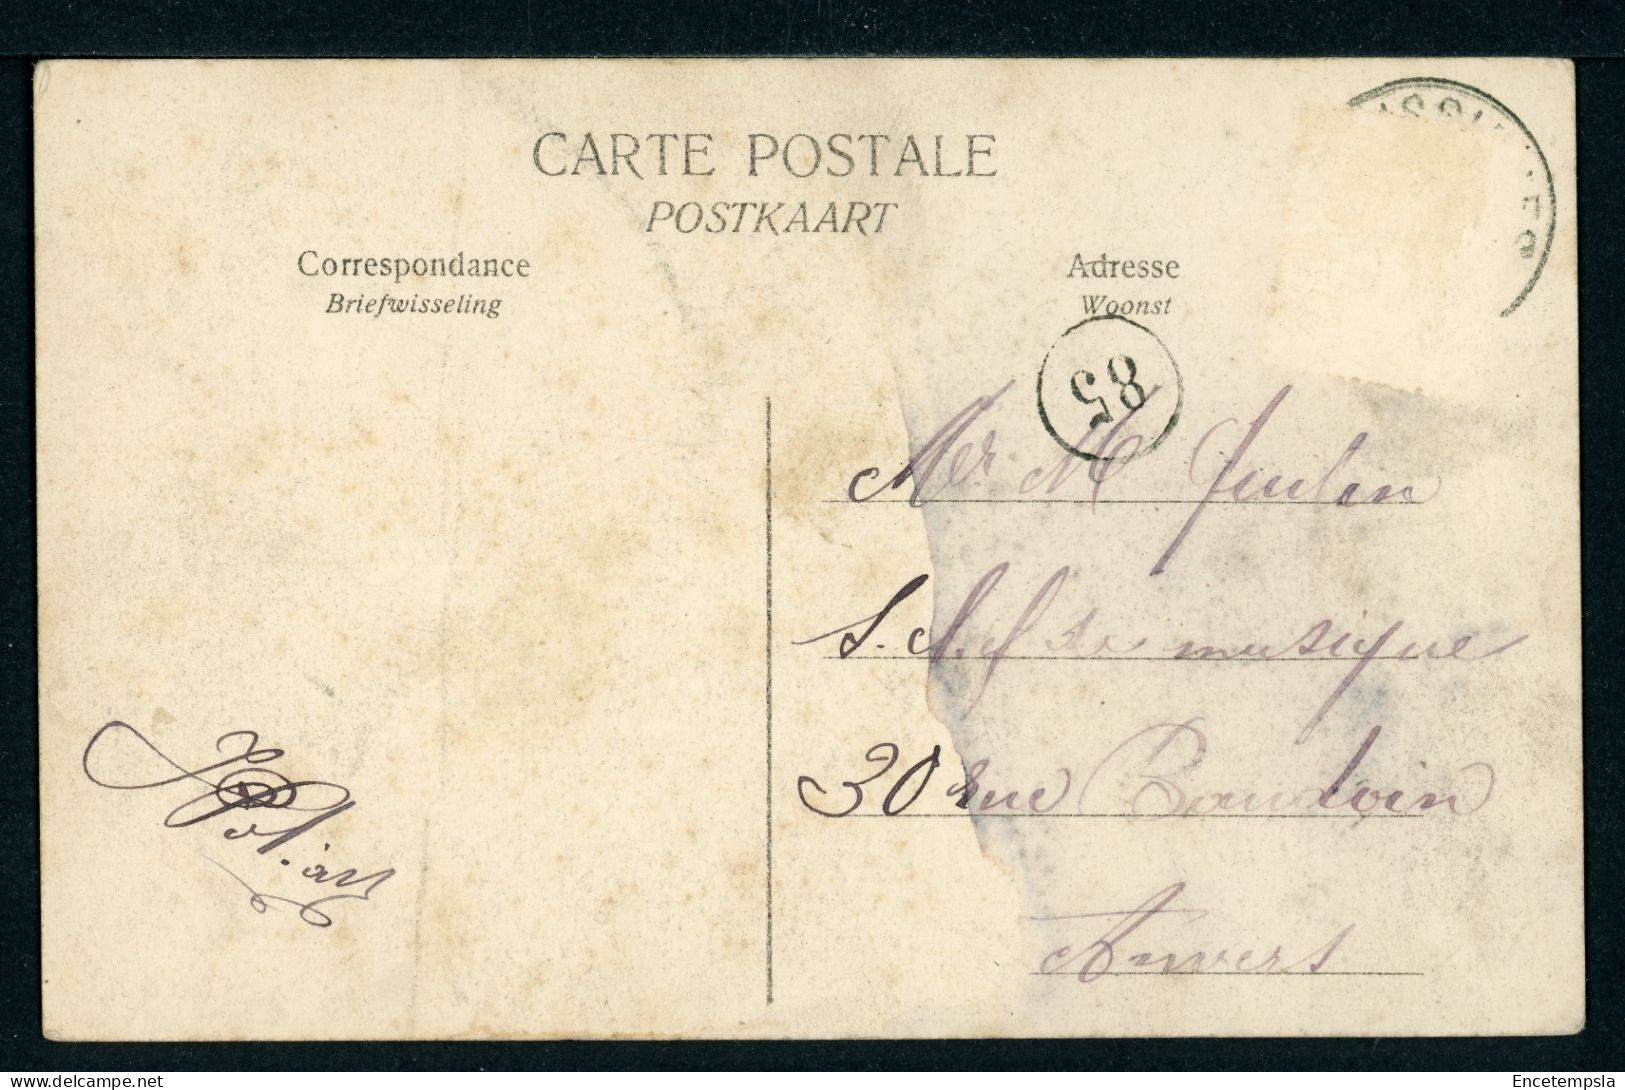 CARTE POSTALE
POSTKAART
Correspondance
Briefwisseling
Adresse
Woonst
85
Mr M
S.
de musique
30 rue Baudoin
Anvers
Encetempsla